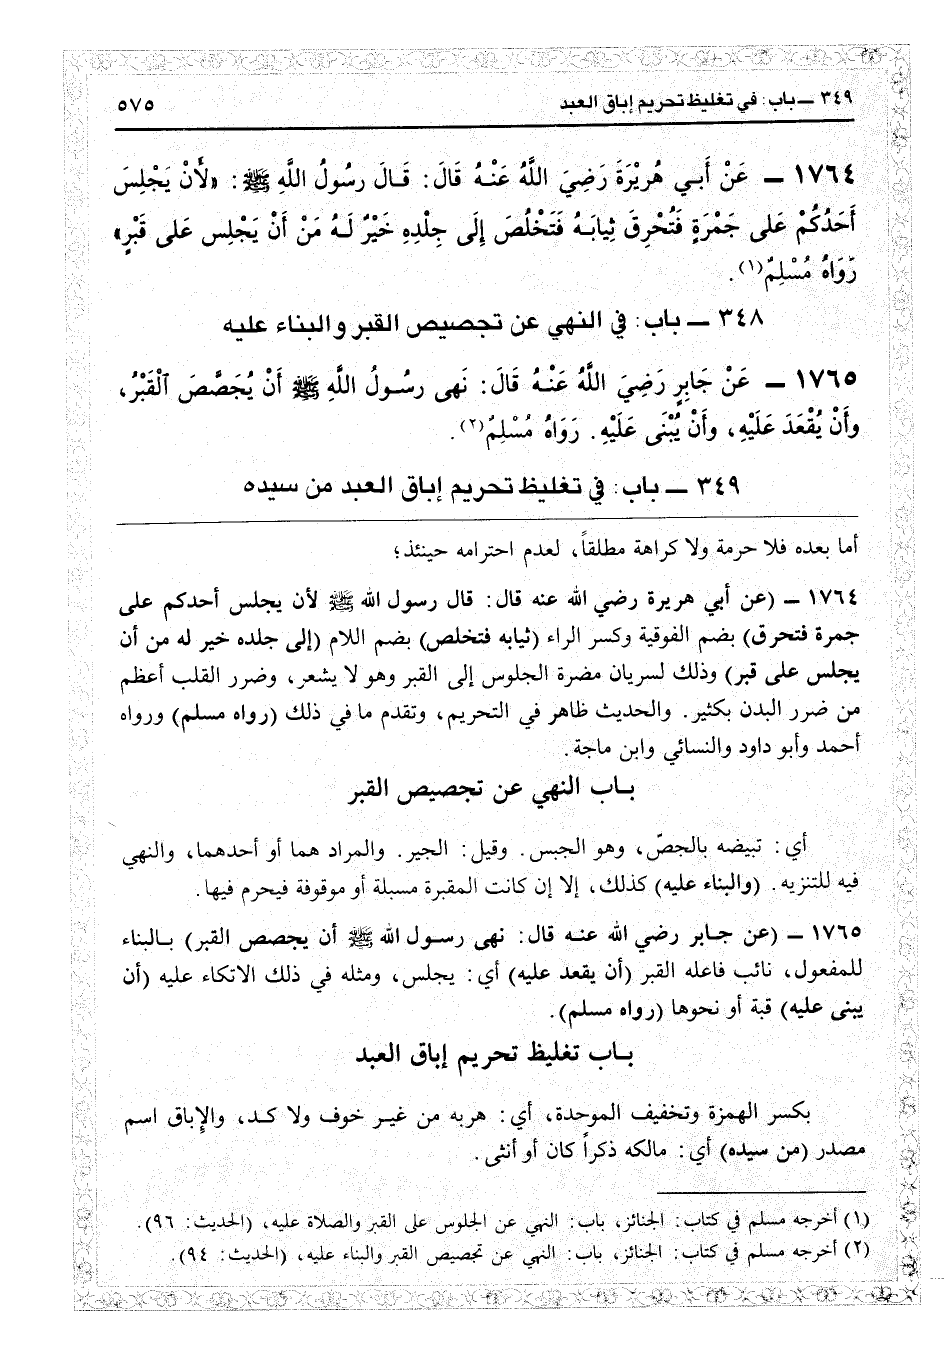 ٣٤٩ ــ باب: في تغليظ تحريم إباق العبد ٥٧٥
١٧٦٤ ــ عَنْ أَبـي هُرَيْرَةَ رَضِيَ اللَّهُ عَنْـهُ قَالَ: قَـالَ رسُولُ اللَّهِ ﷺ: «لَأَنْ يَجْلِسَ
أَحَدُكُمْ عَلى جَمْرَةٍ فَتُحْرِقَ ثِيابَـهُ فَتَخْلُصَ إِلَى جِلْدِهِ خَيْرٌ لَـهُ مَنْ أَنْ يَجْلِس عَلى قَبْرٍ»
رَوَاهُ مُسْلِمٌ(١).
٣٤٨ ــ باب: في النهي عن تجصيص القبر والبناء عليه
١٧٦٥ ــ عَنْ جَابِرٍ رَضِيَ اللَّهُ عَنْـهُ قَالَ: نَهى رسُـولُ اللَّهِ ﷺ أَنْ يُجَصَّصَ ٱلْقَبْرُ،
وأَنْ يُقْعَدَ عَلَيْهِ، وأَنْ يُبْنَى عَلَيْهِ. رَوَاهُ مُسْلِمٌ(٢).
٣٤٩ ــ باب: في تغليظ تحريم إباق العبد من سيده
أما بعده فلا حرمة ولا كراهة مطلقاً، لعدم احترامه حينئذ؛
١٧٦٤ ــ (عن أبي هريرة رضي الله عنه قال: قال رسول الله ﷺ لأن يجلس أحدكم على
جمرة فتحرق) بضم الفوقية وكسر الراء (ثيابه فتخلص) بضم اللام (إلى جلده خير له من أن
يجلس على قبر) وذلك لسريان مضرة الجلوس إلى القبر وهو لا يشعر، وضرر القلب أعظم
من ضرر البدن بكثير. والحديث ظاهر في التحريم، وتقدم ما في ذلك (رواه مسلم) ورواه
أحمد وأبو داود والنسائي وابن ماجة.
بـاب النهي عن تجصيص القبر
أي: تبيضه بالجصّ، وهو الجبس. وقيل: الجير. والمراد هما أو أحدهما، والنهي
فيه للتنزيه. (والبناء عليه) كذلك، إلا إن كانت المقبرة مسبلة أو موقوفة فيحرم فيها.
١٧٦٥ ــ (عن جـابر رضي الله عنـه قال: نهى رسـول الله ﷺ أن يجصص القبر) بـالبناء
للمفعول، نائب فاعله القبر (أن يقعد عليه) أي: يجلس، ومثله في ذلك الاتكاء عليه (أن
يبنى عليه) قبة أو نحوها (رواه مسلم).
بـاب تغليظ تحريم إباق العبد
بكسر الهمزة وتخفيف الموحدة، أي: هربه من غيـر خوف ولا كـد، والإباق اسم
مصدر (من سيده) أي: مالكه ذكراً كان أو أنثى.
(١) أخرجه مسلم في كتاب: الجنائز، باب: النهي عن الجلوس على القبر والصلاة عليه، (الحديث: ٩٦).
(٢) أخرجه مسلم في كتاب: الجنائز، باب: النهي عن تجصيص القبر والبناء عليه، (الحديث: ٩٤).